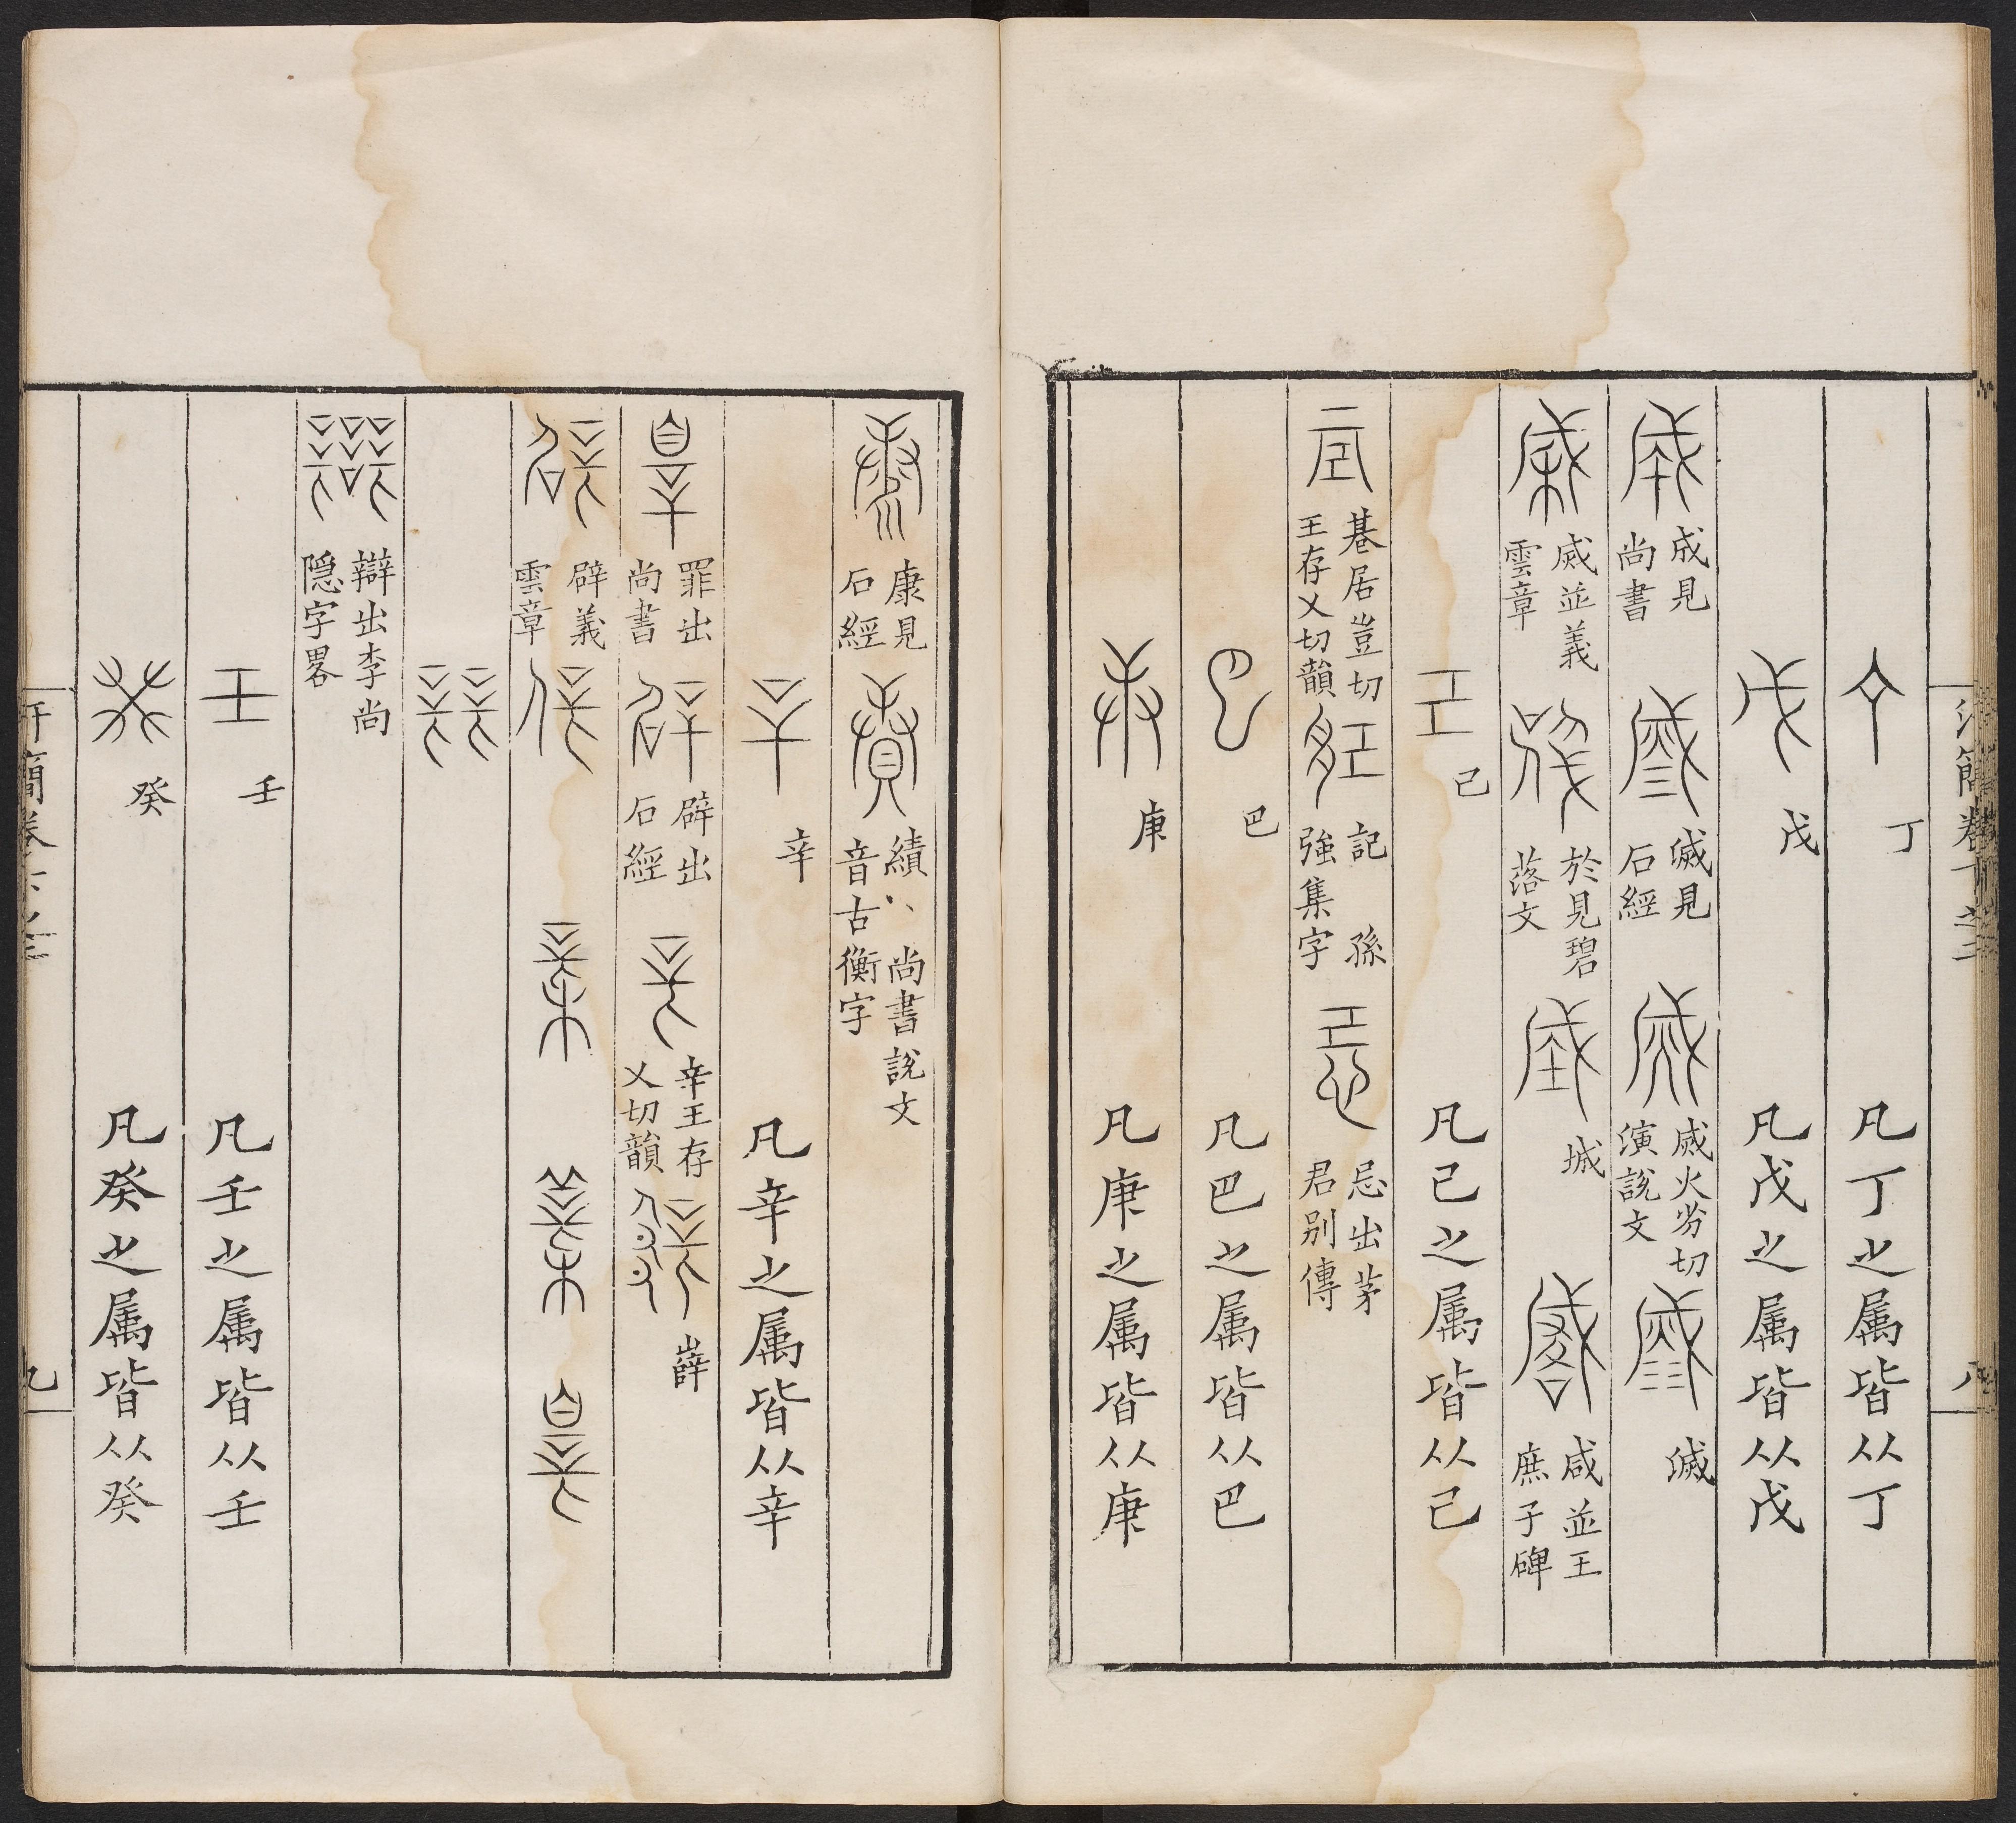 丁 凡丁之属皆从丁
戊 凡戊之属皆从戊
成見尚書 滅見石經 烕火劣切演說文 滅
烕並義雲章 於見碧落文 城 咸並王庶子碑
己 凡己之属皆从己
朞居豈切王存乂切韻 記孫強集字 忌出茅君别傳
巴 凡巴之属皆从巴
庚 凡庚之属皆从庚
康見石經 績尚書說文音古衡字
辛 凡辛之属皆从辛
罪出尚書 辟出石經 辛王存乂切韻 薛
辟義雲章
辯出李尚隠字畧
壬 凡壬之属皆从壬
癸 凡癸之属皆从癸